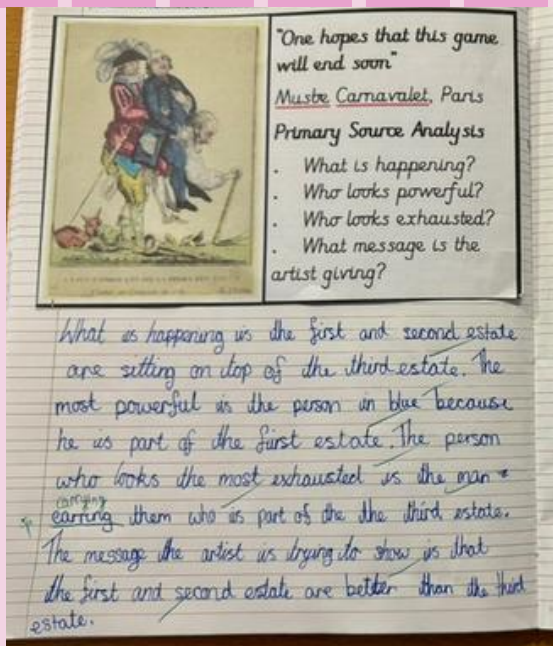 "One hopes that this game
will end soon"
Muste Carnavalet, Paris
Primary Source Analysis
. What is happening?
. Who looks powerful?
. Who looks exhausted?
. What message is the
artist giving?
What is happening is the first and second estate
are sitting on top of the third estate. The
most powerful is the person in blue because
he is part of the first estate. The person
who looks the most exhausted is the man
carrying
carring them who is part of the the third estate.
The message the artist is trying to show is that
the first and second estate are better than the third
estate.